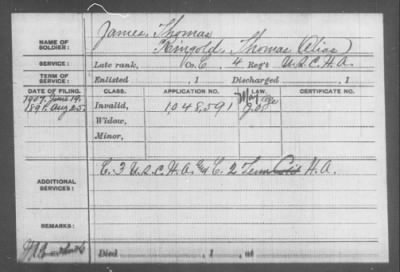 NAME OF SOLDIER: James, Thomas
Ringold, Thomas (Alias)
SERVICE: Late rank, Co. C, 4 Reg't U.S.C.H.A.
TERM OF SERVICE: Enlisted , 1 Discharged , 1
DATE OF FILING. CLASS. APPLICATION NO. LAW. CERTIFICATE NO.
1907, June 19.
1891, Aug 25. Invalid, 1,048,591
Widow,
Minor,
ADDITIONAL SERVICES: C. 3 U.S.C.H.A. C. 2 Tenn H.A.
REMARKS:
Died , 1 , at